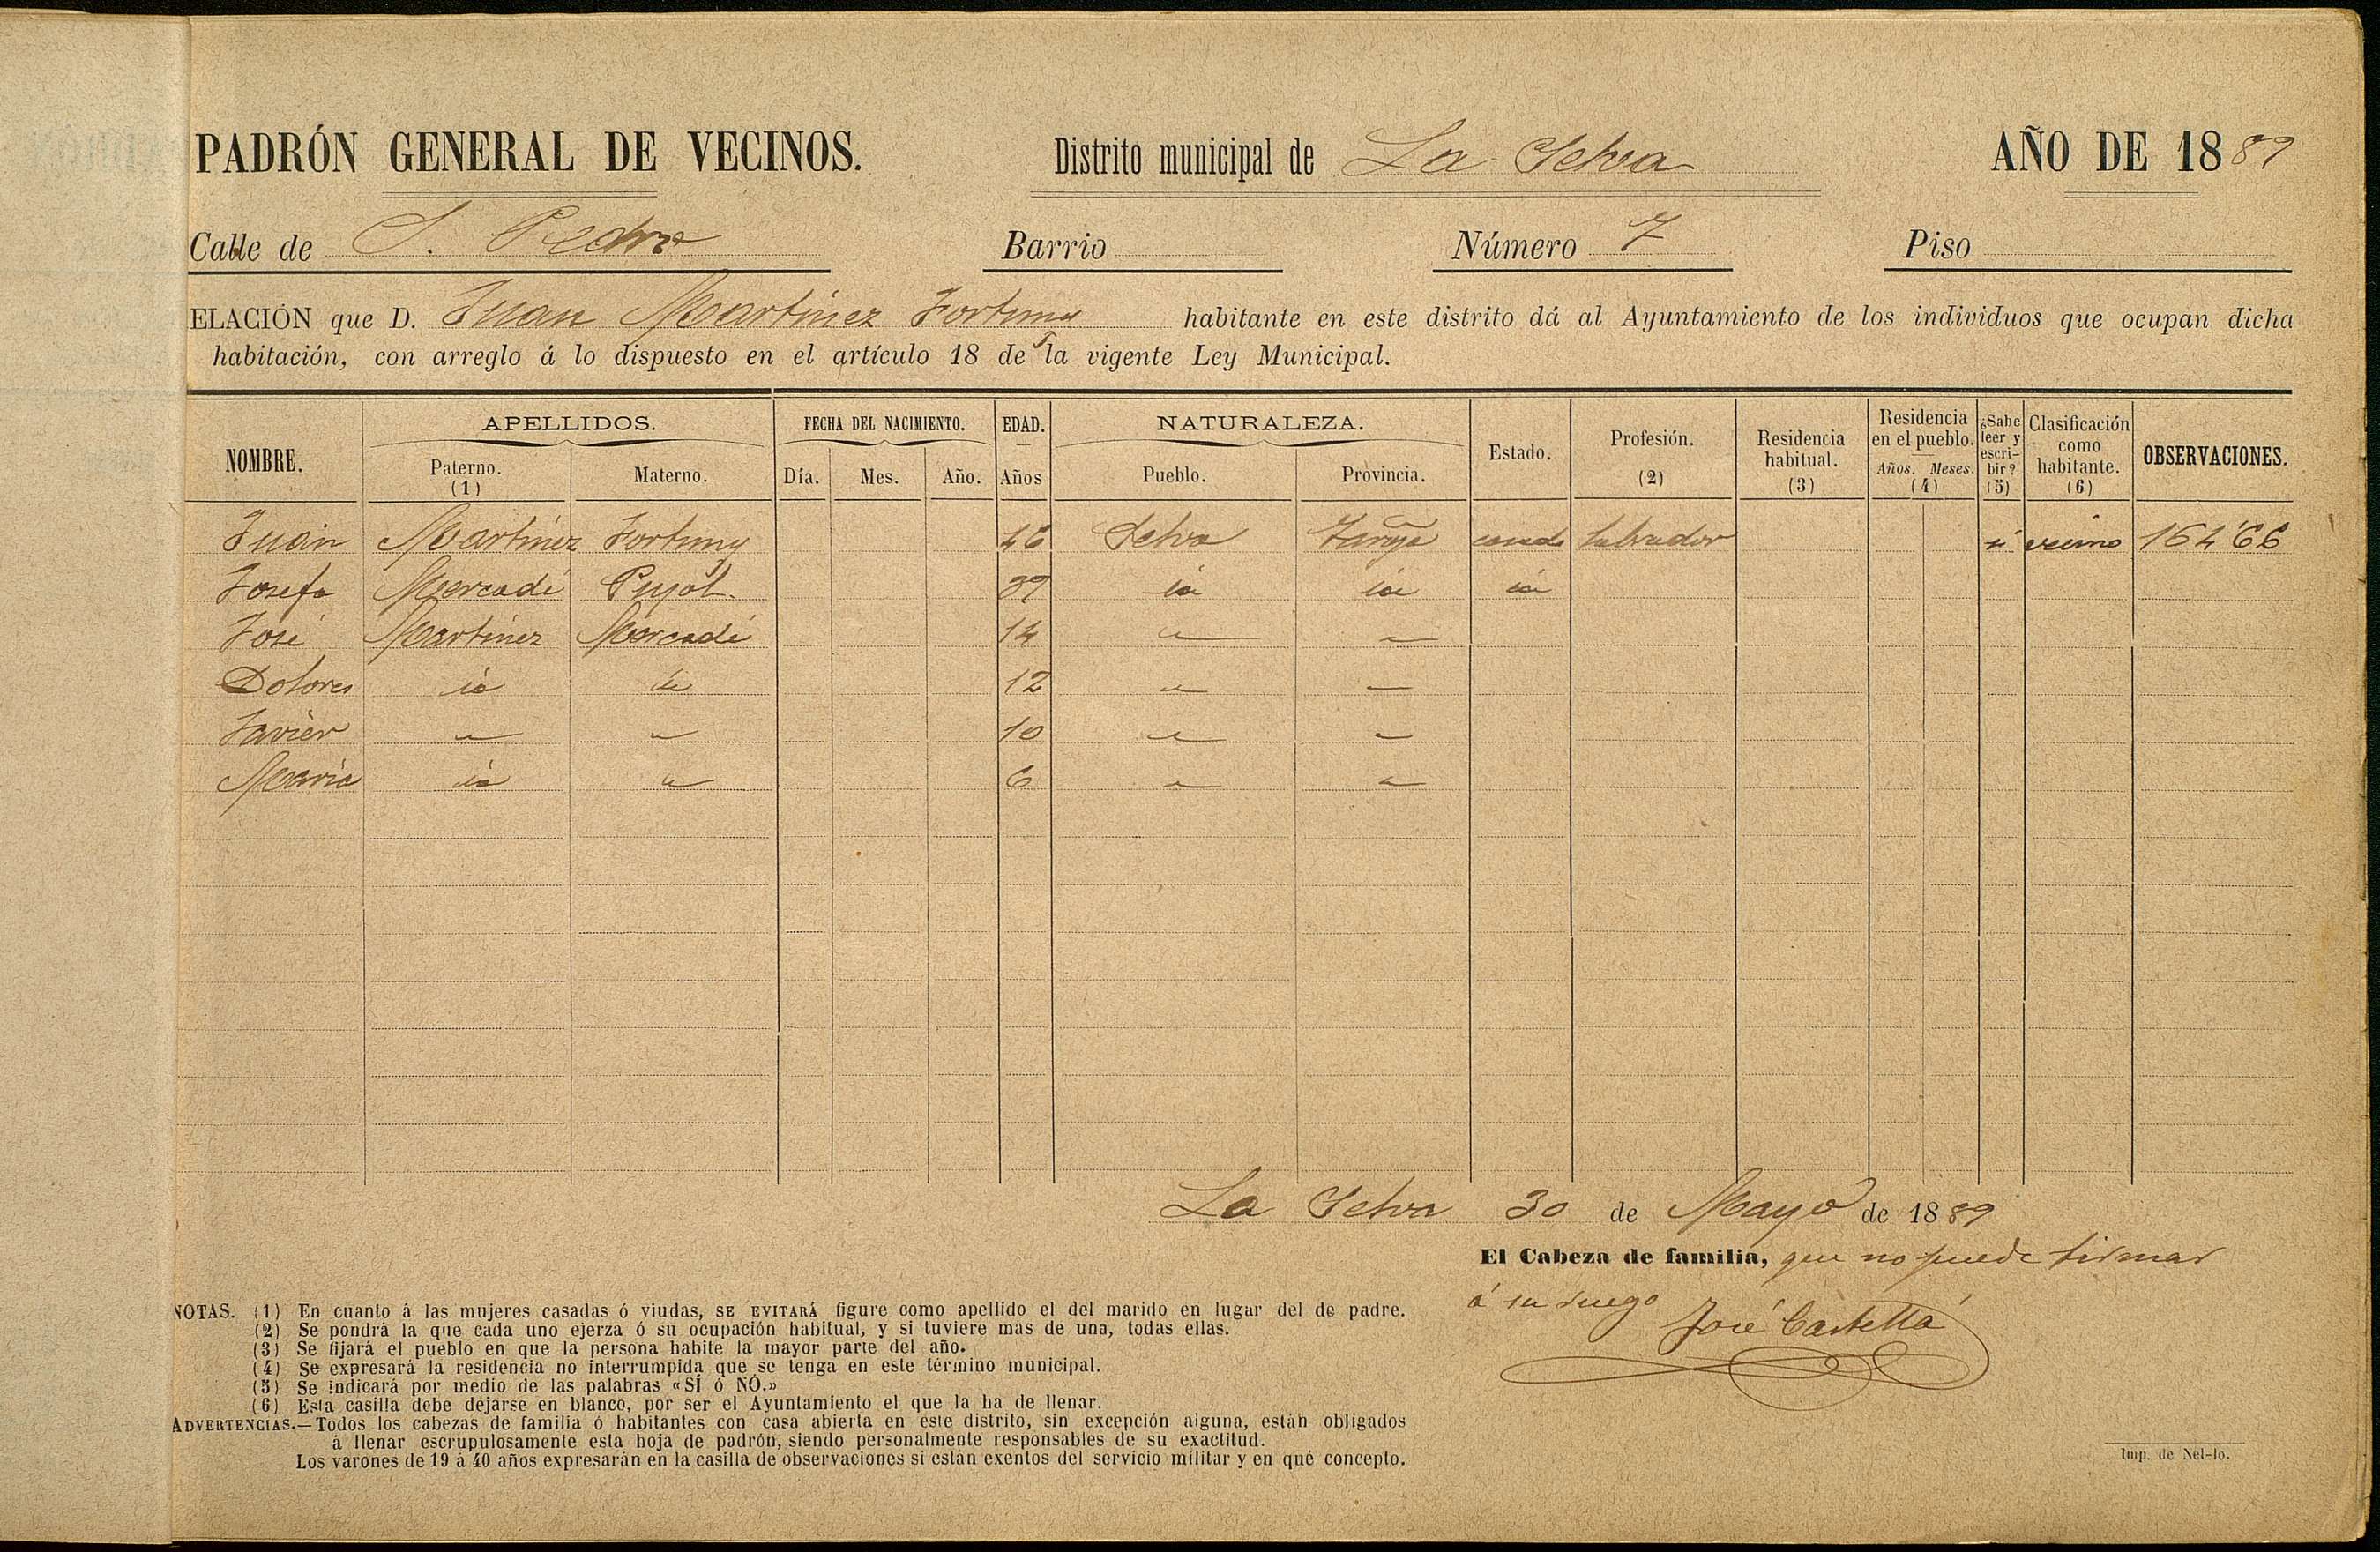 PADRÓN GENERAL DE VECINOS. Distrito municipal de La Selva AÑO DE 1889
Calle de S. Pedro Barrio Número 7 Piso
ELACIÓN que D. Juan Martinez Fortuny habitante en este distrito dá al Ayuntamiento de los individuos que ocupan dicha
habitación, con arreglo á lo dispuesto en el artículo 18 de la vigente Ley Municipal.
NOMBRE. APELLIDOS. FECHA DEL NACIMIENTO. EDAD. NATURALEZA. Estado. Profesión. (2) Residencia habitual. (3) Residencia en el pueblo. Años. Meses. (4) ¿Sabe leer y escribir? (5) Clasificación como habitante. (6) OBSERVACIONES.
Paterno. (1) Materno. Día. Mes. Año. Años Pueblo. Provincia.
Juan Martinez Fortuny 46 Selva labrador vecino 164'66
Josefa Mercadé Pujol. 39 id id id
José Martinez Mercadé 14 " "
Dolores id id 12 " "
Javier " " 10 " "
Maria id " 6 " "
La Selva 30 de Mayo de 1889
El Cabeza de familia, que no puede firmar
á su ruego
José Castellá
NOTAS. (1) En cuanto á las mujeres casadas ó viudas, SE EVITARÁ figure como apellido el del marido en lugar del de padre.
(2) Se pondrá la que cada uno ejerza ó su ocupación habitual, y si tuviere mas de una, todas ellas.
(3) Se fijará el pueblo en que la persona habite la mayor parte del año.
(4) Se expresará la residencia no interrumpida que se tenga en este término municipal.
(5) Se indicará por medio de las palabras «SÍ ó NÓ.»
(6) Esta casilla debe dejarse en blanco, por ser el Ayuntamiento el que la ha de llenar.
ADVERTENCIAS.—Todos los cabezas de familia ó habitantes con casa abierta en este distrito, sin excepción alguna, están obligados
á llenar escrupulosamente esta hoja de padrón, siendo personalmente responsables de su exactitud.
Los varones de 19 á 40 años expresarán en la casilla de observaciones si están exentos del servicio militar y en qué concepto.
Imp. de Nel-lo.